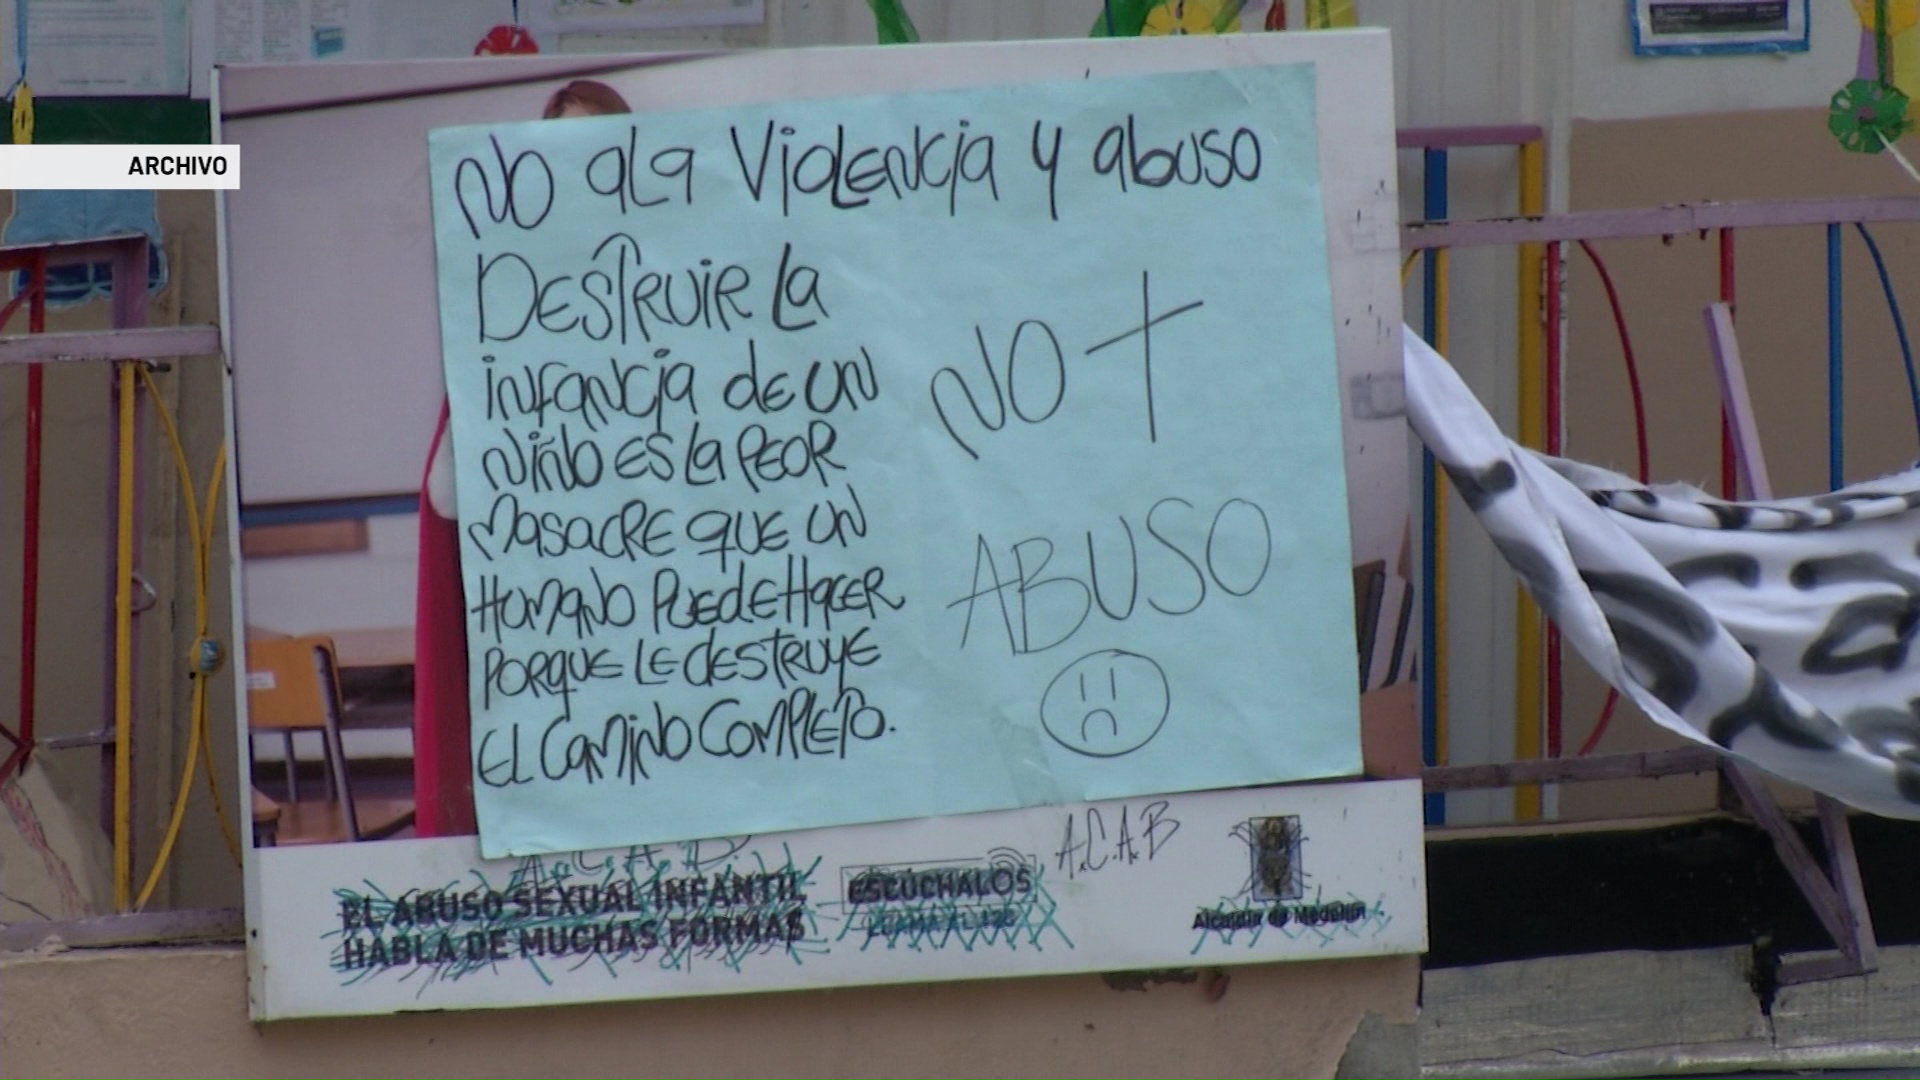 ARCHIVO
NO ALA VIOLENCIA Y ABUSO
DESTRUIR LA
INFANCIA DE UN
NIÑO ES LA PEOR
MASACRE QUE UN
HUMANO PUEDE HACER
PORQUE LE DESTRUYE
EL CAMINO COMPLETO.
NO +
ABUSO
A.C.A.B
A.C.A.B
EL ABUSO SEXUAL INFANTIL
HABLA DE MUCHAS FORMAS
ESCÚCHALOS
LLAMA AL 123
Alcaldía de Medellín